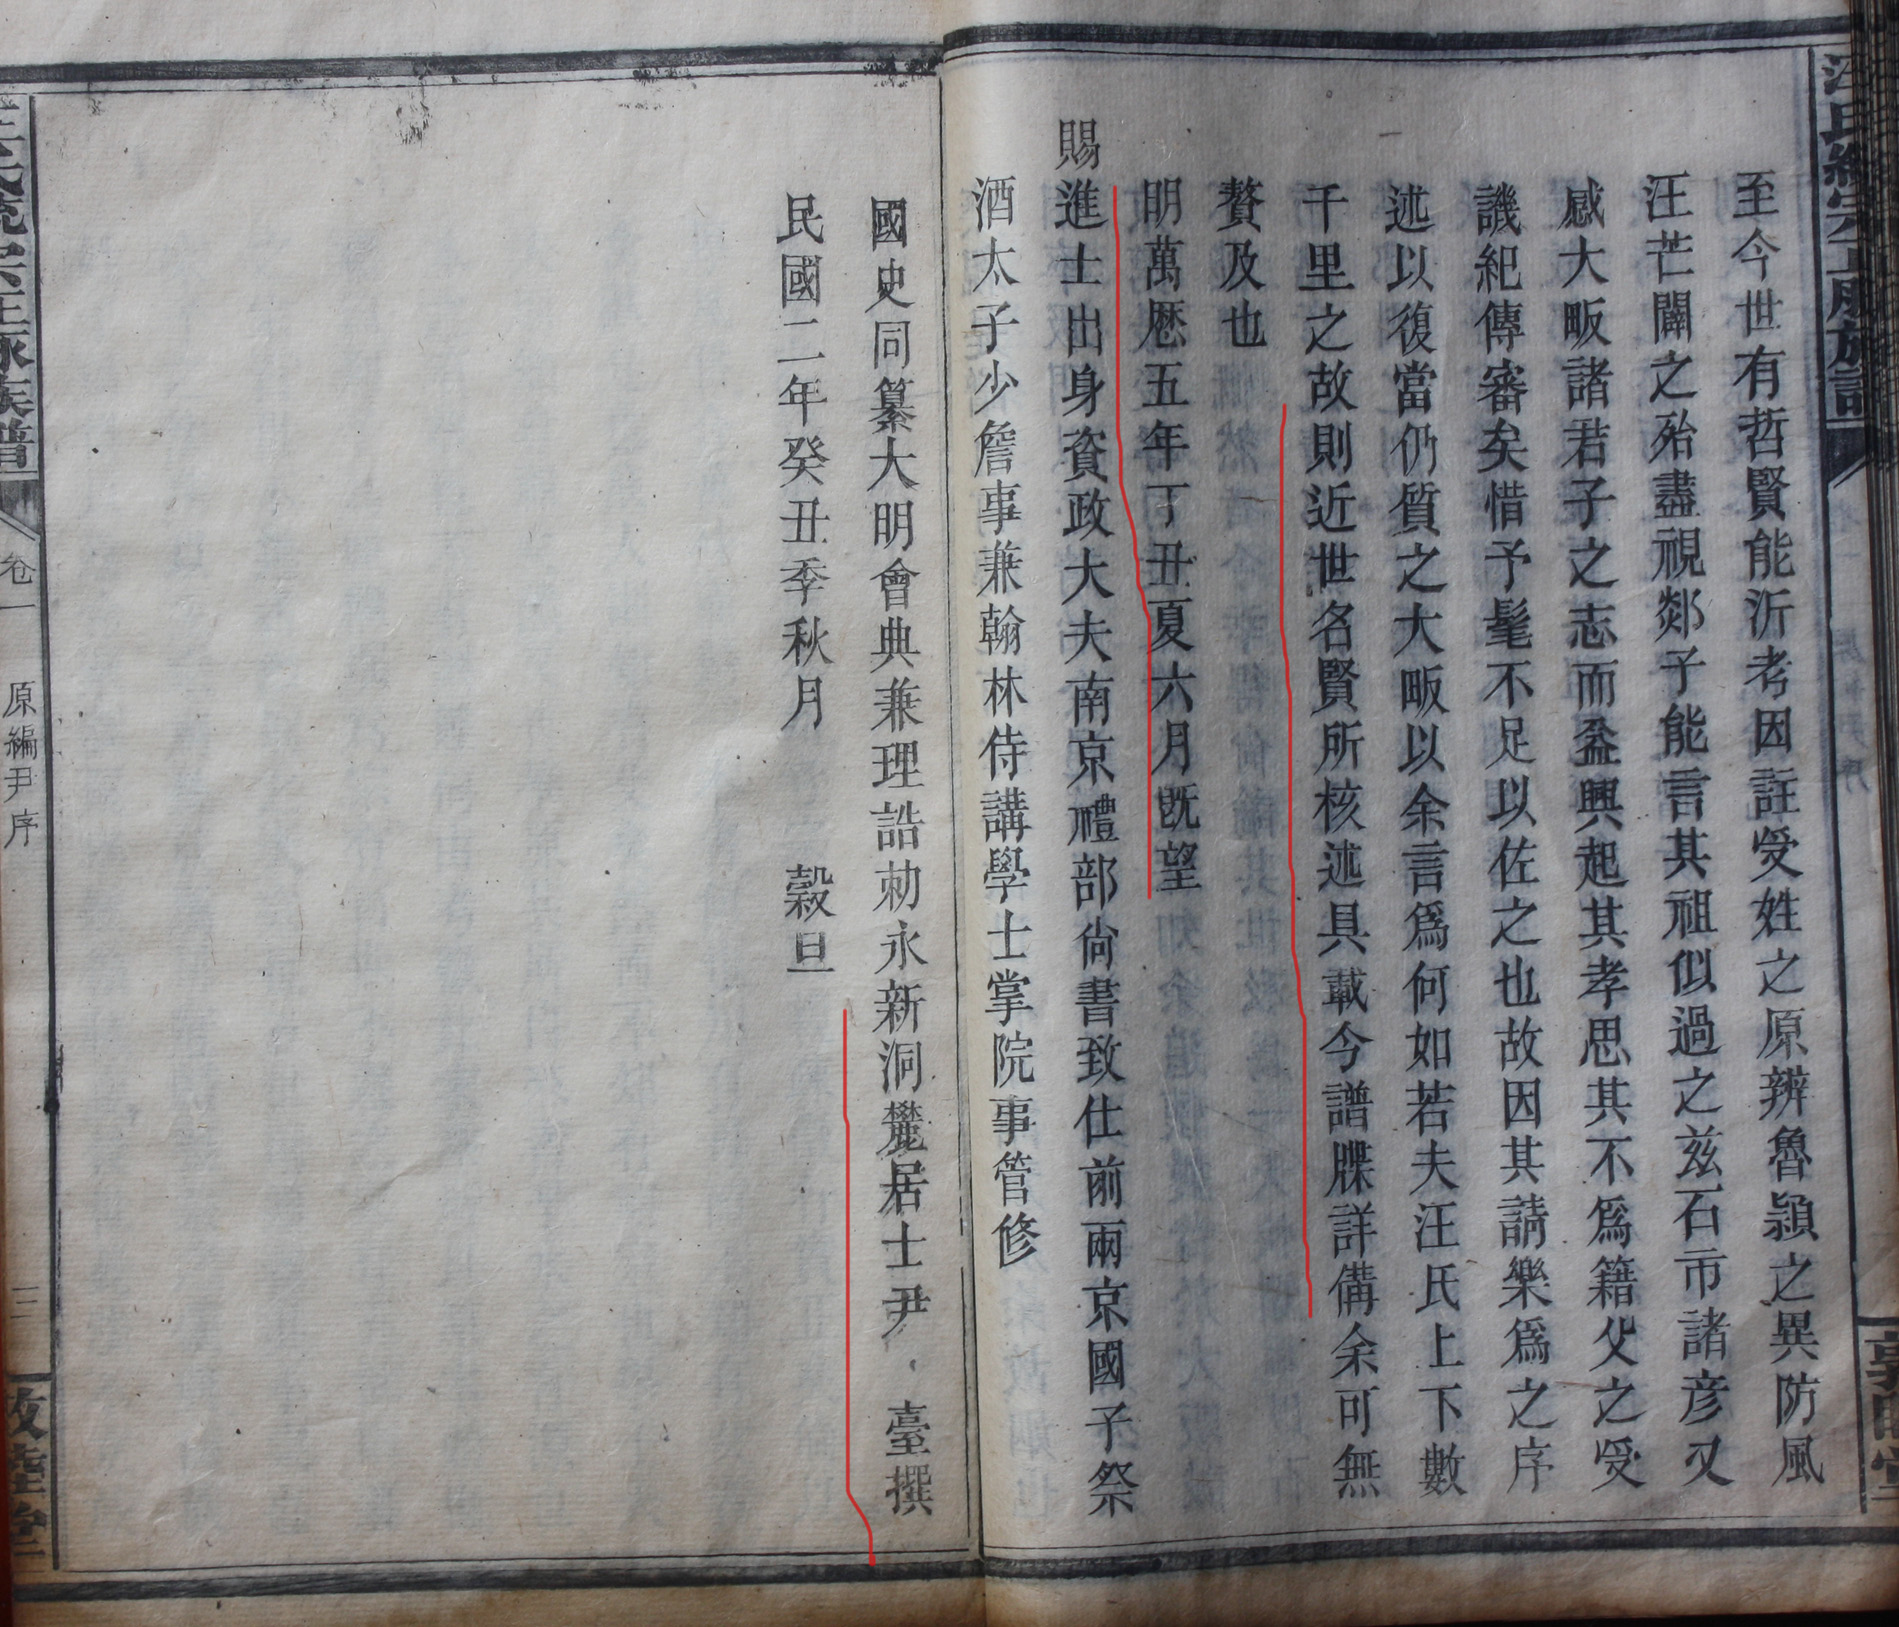 至今世有哲賢能沂考因註受姓之原辨魯潁之異防風
汪芒闢之殆盡視郯子能言其祖似過之玆石市諸彦又
感大畈諸君子之志而益興起其孝思其不爲籍父之受
譏紀傳審矣惜予髦不足以佐之也故因其請樂爲之序
述以復當仍質之大畈以余言爲何如若夫汪氏上下數
千里之故則近世名賢所核述具載今譜牒詳備余可無
贅及也
明萬厯五年丁丑夏六月既望
賜進士出身資政大夫南京禮部尙書致仕前兩京國子祭
酒太子少詹事兼翰林侍講學士掌院事管修
國史同纂大明會典兼理誥勅永新洞麓居士尹臺撰
民國二年癸丑季秋月 穀旦
卷一 原編尹序 三